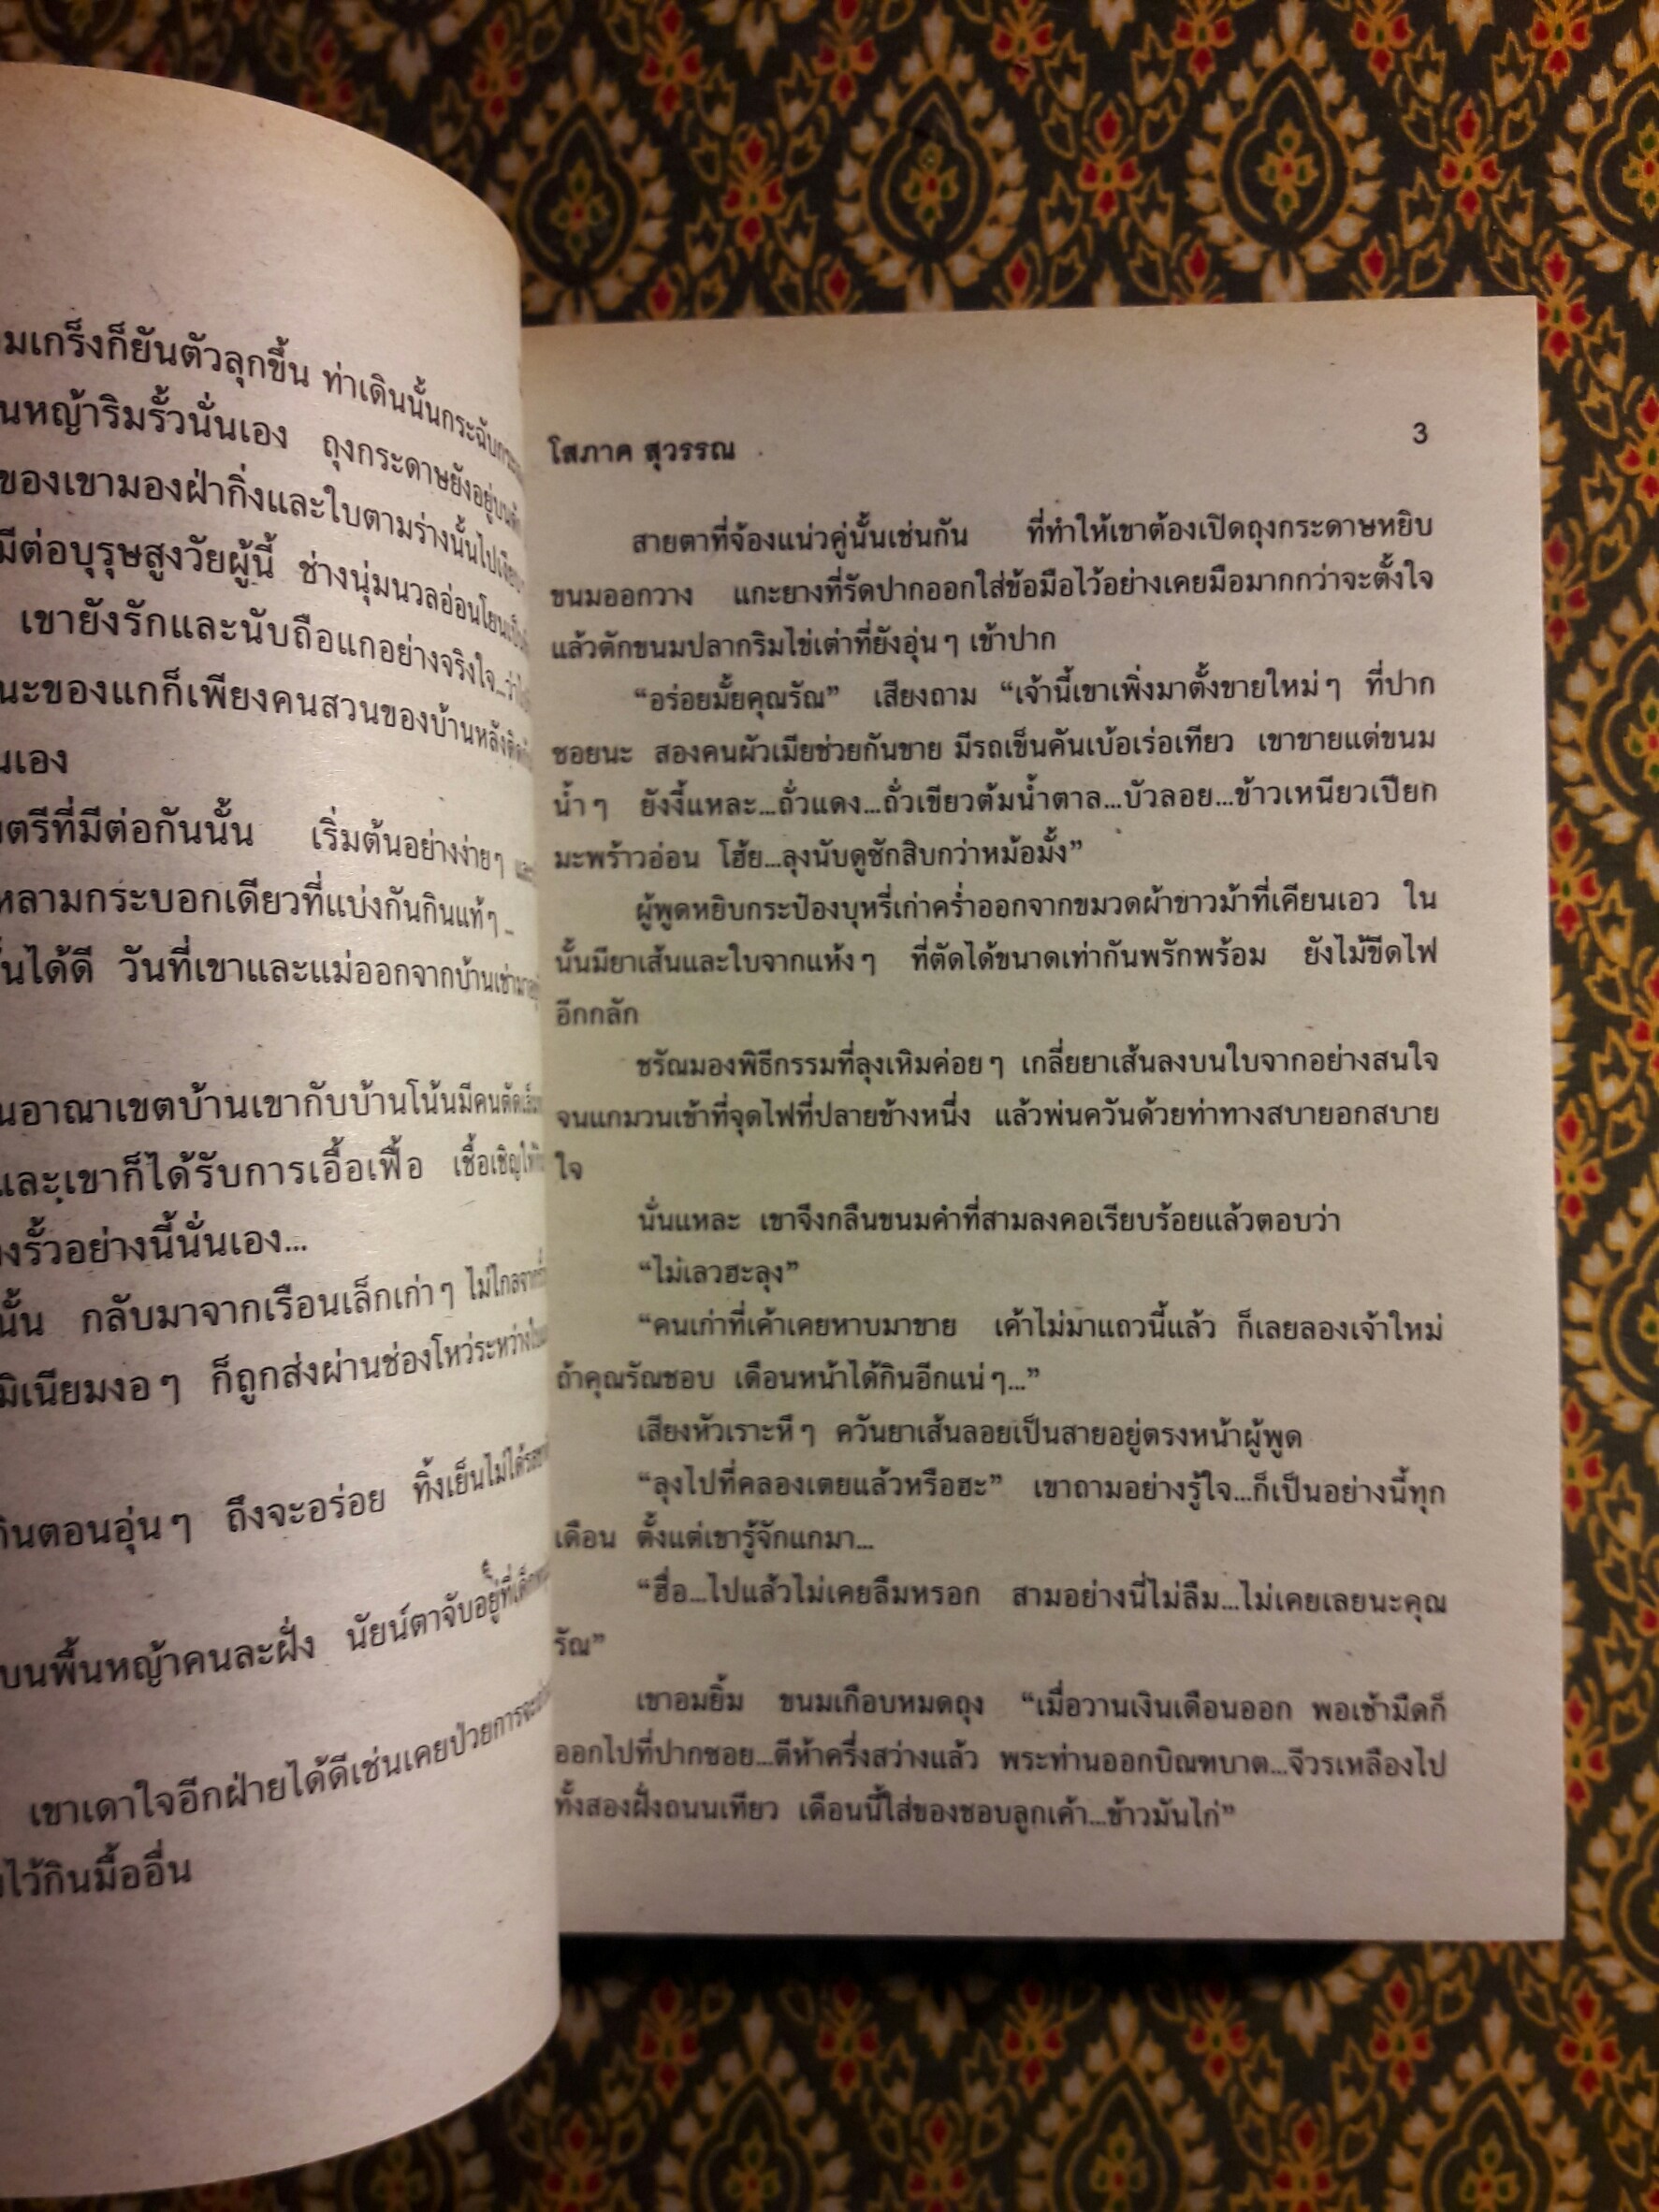 มเกร็งก็ยันตัวลุกขึ้น ท่าเดินนั้นกระฉับ
นหญ้าริมรั้วนั่นเอง ถุงกระดาษยังอยู่บน
ของเขามองฝ่ากิ่งและใบตามร่างนั้นไป
มีต่อบุรุษสูงวัยผู้นี้ ช่างนุ่มนวลอ่อนโยน
เขายังรักและนับถือแกอย่างจริงใจ...ว่า
นะของแกก็เพียงคนสวนของบ้านหลัง
นเอง
ตรีที่มีต่อกันนั้น เริ่มต้นอย่างง่ายๆ
หลามกระบอกเดียวที่แบ่งกันกินแท้ๆ...
นได้ดี วันที่เขาและแม่ออกจากบ้านเช่า
นอาณาเขตบ้านเขากับบ้านโน้นมีคนตัด
และเขาก็ได้รับการเอื้อเฟื้อ เชื้อเชิญ
งรั้วอย่างนี้นั่นเอง...
นั้น กลับมาจากเรือนเล็กเก่าๆ ไม่ไกลจาก
มิเนียมงอๆ ก็ถูกส่งผ่านช่องโหว่ระหว่าง
กินตอนอุ่นๆ ถึงจะอร่อย ทิ้งเย็นไม่ได้
บนพื้นหญ้าคนละฝั่ง นัยน์ตาจับอยู่ที่
เขาเดาใจอีกฝ่ายได้ดีเช่นเคยป่วยการจะ
ไว้กินมื้ออื่น
โสภาค สุวรรณ 3
สายตาที่จ้องแน่วคู่นั้นเช่นกัน ที่ทำให้เขาต้องเปิดถุงกระดาษหยิบ
ขนมออกวาง แกะยางที่รัดปากออกใส่ข้อมือไว้อย่างเคยมือมากกว่าจะตั้งใจ
แล้วตักขนมปลากริมไข่เต่าที่ยังอุ่นๆ เข้าปาก
“อร่อยมั้ยคุณรัณ” เสียงถาม “เจ้านี้เขาเพิ่งมาตั้งขายใหม่ๆ ที่ปาก
ซอยนะ สองคนผัวเมียช่วยกันขาย มีรถเข็นคันเบ้อเร่อเทียว เขาขายแต่ขนม
น้ำๆ ยังงี้แหละ...ถั่วแดง...ถั่วเขียวต้มน้ำตาล...บัวลอย...ข้าวเหนียวเปียก
มะพร้าวอ่อน โฮ้ย...ลุงนับดูซักสิบกว่าหม้อมั้ง”
ผู้พูดหยิบกระป๋องบุหรี่เก่าคร่ำออกจากขมวดผ้าขาวม้าที่เคียนเอว ใน
นั้นมียาเส้นและใบจากแห้งๆ ที่ตัดได้ขนาดเท่ากันพรักพร้อม ยังไม้ขีดไฟ
อีกกลัก
ชรัณมองพิธีกรรมที่ลุงเหิมค่อยๆ เกลี่ยยาเส้นลงบนใบจากอย่างสนใจ
จนแกมวนเข้าที่จุดไฟที่ปลายข้างหนึ่ง แล้วพ่นควันด้วยท่าทางสบายอกสบาย
ใจ
นั่นแหละ เขาจึงกลืนขนมคำที่สามลงคอเรียบร้อยแล้วตอบว่า
“ไม่เลวฮะลุง”
“คนเก่าที่เค้าเคยหาบมาขาย เค้าไม่มาแถวนี้แล้ว ก็เลยลองเจ้าใหม่
ถ้าคุณรัณชอบ เดือนหน้าได้กินอีกแน่ๆ...”
เสียงหัวเราะหึๆ ควันยาเส้นลอยเป็นสายอยู่ตรงหน้าผู้พูด
“ลุงไปที่คลองเตยแล้วหรือฮะ” เขาถามอย่างรู้ใจ...ก็เป็นอย่างนี้ทุก
เดือน ตั้งแต่เขารู้จักแกมา...
“ฮื่อ...ไปแล้วไม่เคยลืมหรอก สามอย่างนี่ไม่ลืม...ไม่เคยเลยนะคุณ
รัณ”
เขาอมยิ้ม ขนมเกือบหมดถุง “เมื่อวานเงินเดือนออก พอเช้ามืดก็
ออกไปที่ปากซอย...ตีห้าครึ่งสว่างแล้ว พระท่านออกบิณฑบาต...จีวรเหลืองไป
ทั้งสองฝั่งถนนเทียว เดือนนี้ใส่ของชอบลูกเค้า...ข้าวมันไก่”